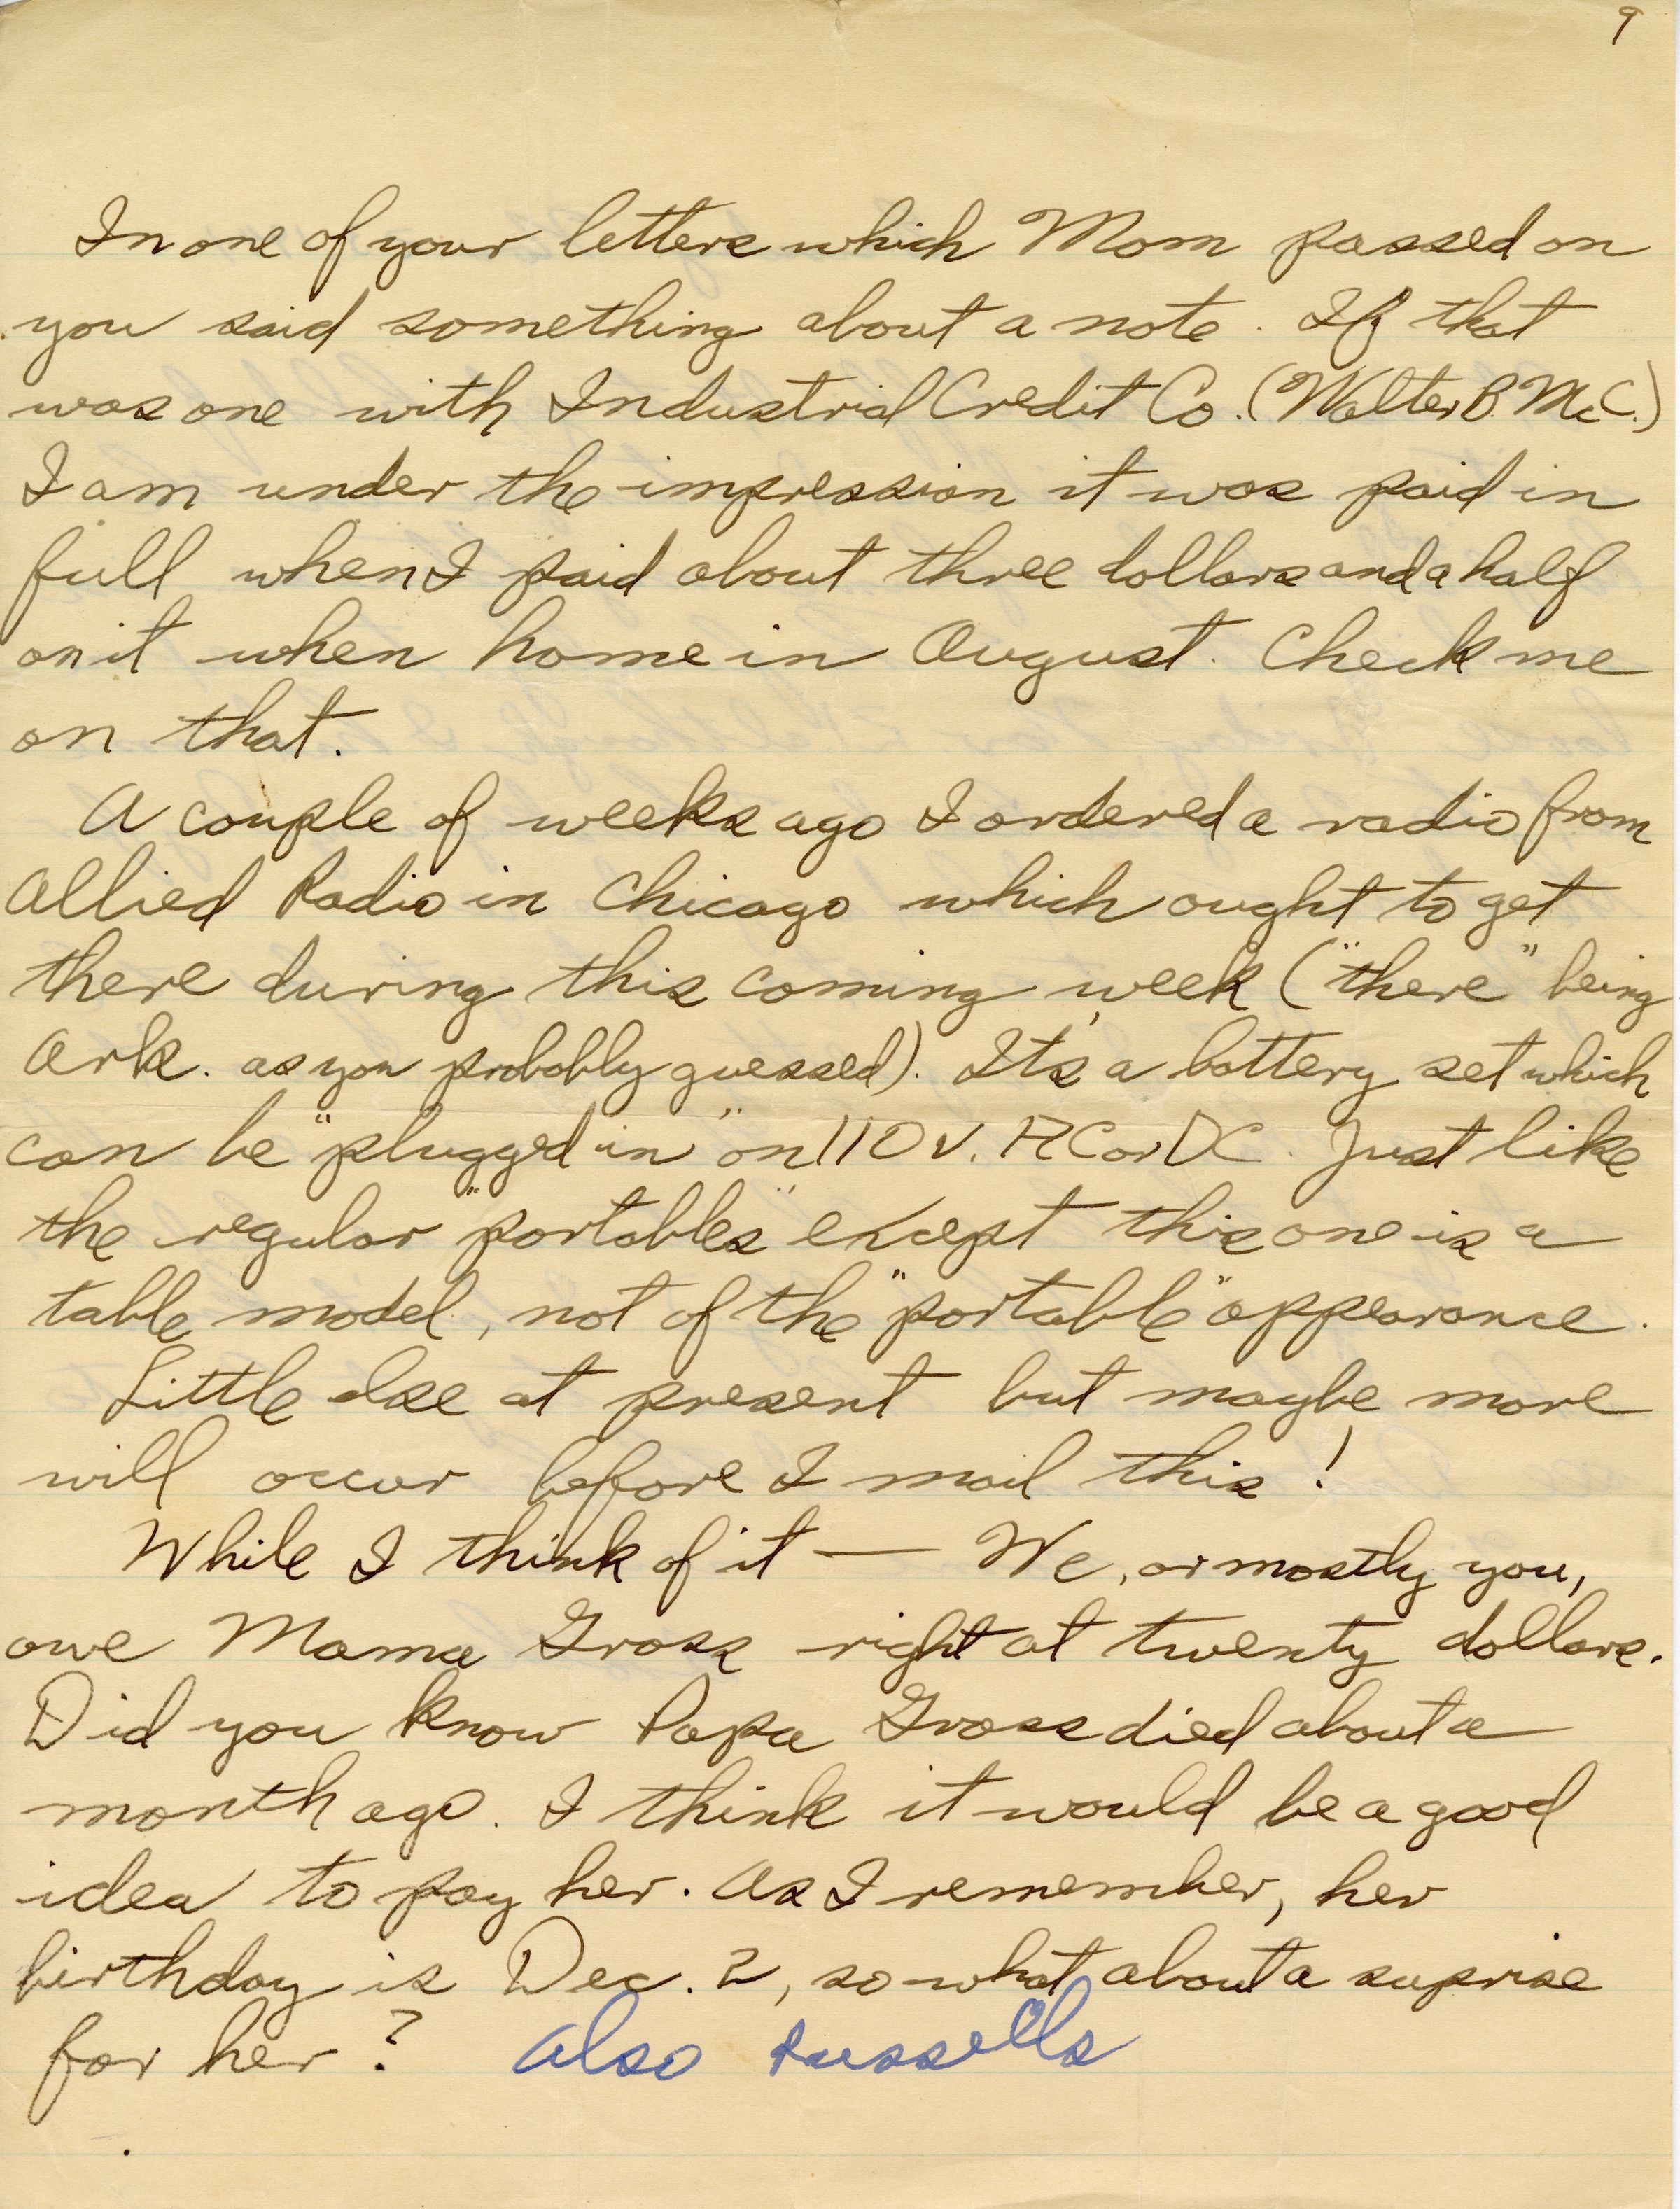 9
In one of your letters which Mom passed on
you said something about a note. If that
was one with Industrial Credit Co. (Walter B. McC.)
I am under the impression it was paid in
full when I paid about three dollars and a half
on it when home in August. Check me
on that.
A couple of weeks ago I ordered a radio from
Allied Radio in Chicago which ought to get
there during this coming week ("there" being
Ark. as you probably guessed). It's a battery set which
can be "plugged in" on 110 v. AC or DC. Just like
the regular "portables" except this one is a
table model, not of the "portable" appearance.
Little else at present but maybe more
will occur before I mail this!
While I think of it — We, or mostly you,
owe Mama Gross right at twenty dollars.
Did you know Papa Gross died about a
month ago. I think it would be a good
idea to pay her. As I remember, her
birthday is Dec. 2, so what about a suprise
for her? Also Russells